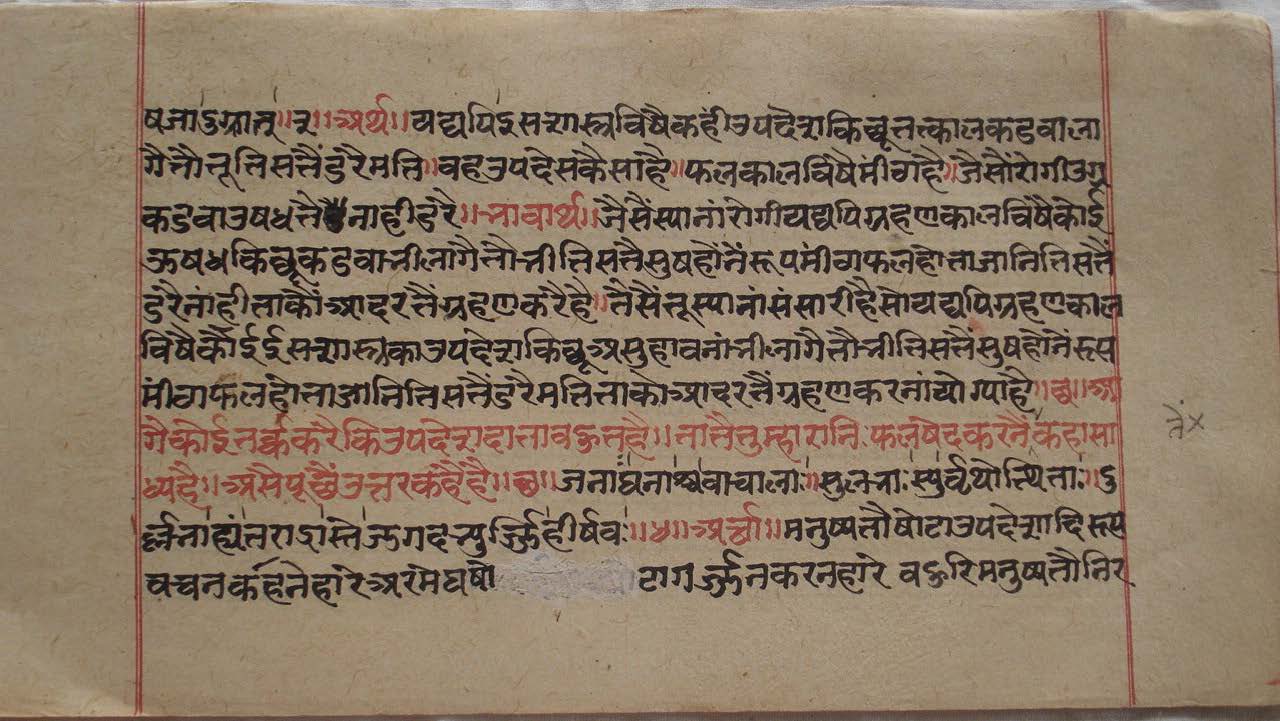 षजाऽग्रात् ॥३॥ अर्थ ॥ यद्यपि इस शास्त्र विषै कहीं उपदेश किछू तत्काल कडवा ला
गै तौ तू तिसतैं डरै मति ॥ वह उपदेस कैसा है ॥ फलकाल विषै मींठा है ॥ जैसैं रोगी उग्र
कडवा उषध तै नाही डरै ॥ भावार्थ ॥ जैसैं स्यानां रोगी यद्यपि ग्रहणकाल विषै कोई
ऊषध किछू कडवा भी लागै तौ भी तिसतै सुष होनैं रूप मींठा फल होता जानि तिसतैं
डरै नांही ताकौं आदरतैं ग्रहण करै है ॥ तैसैं तू स्यानां संसारी है सो यद्यपि ग्रहणकाल
विषै कोई ई इस शास्त्र का उपदेश किछू असुहावनां भी लागै तौ भी तिसतैं सुष होनैं रूप
मींठा फल होता जानि तिसतैं डरै मति ताका आदरतैं ग्रहण करनां योग्य है ॥छ॥ आ
गै कोई तर्क्क करै कि उपदेशदाता वक्तृत है ॥ तातै तुम्हारा निःफल षेद करनैं कहा सा
ध्य है ॥ असै पूछैं उत्तर कहैं है ॥छ॥ जना घनाश्च वाचालाः ॥ सुलभाः स्युर्वृथोत्थिताः ॥ दु
र्ल्लभा ह्यंतरार्द्रास्ते जगदभ्युर्ज्जिहीर्षवः ॥४॥ अर्थ ॥ मनुष्य तौ षोटा उपदेशादि रूप
वचन कहनेहारे अर मेघ षो टा गर्ज्जन करनहारे बहुरि मनुष्य तौ निर
तें ×